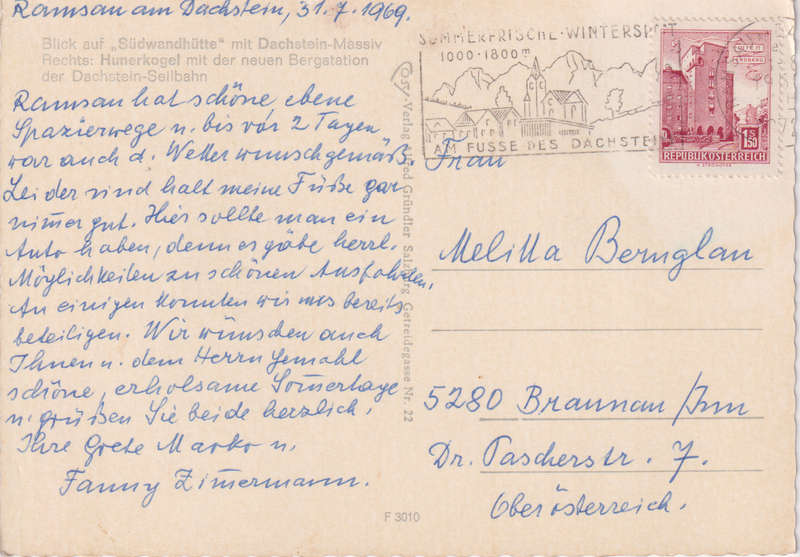 Ramsau am Dachstein, 31.7.1969.
Blick auf „Südwandhütte" mit Dachstein-Massiv
Rechts: Hunerkogel mit der neuen Bergstation
der Dachstein-Seilbahn
Ramsau hat schöne ebene
Spazierwege u. bis vor 2 Tagen
war auch d. Wetter wunschgemäß.
Leider sind halt meine Füße gar
nim̅er gut. Hier sollte man ein
Auto haben, denn es gäbe herrl.
Möglichkeiten zu schönen Ausfahrten.
An einigen konnten wir uns bereits
beteiligen. Wir wünschen auch
Ihnen u. dem Herrn Gemahl
schöne, erholsame Som̅ertage
u. grüßen Sie beide herzlich,
Ihre Grete Marko u.
Fanny Zim̅ermann.
Cosy-Verlag Alfred Gründler Salzburg, Getreidegasse Nr. 22
F 3010
SOMMERFRISCHE · WINTERSPORT
1000 - 1800 m
AM FUSSE DES DACHSTEIN
WIEN
1.50
REPUBLIK ÖSTERREICH
Frau
Melitta Bernglau
5280 Braunau/Inn
Dr. Tascherstr. 7.
Oberösterreich.